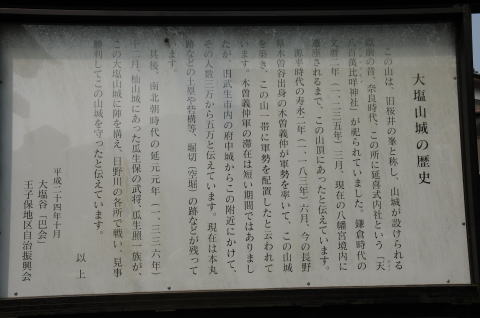 大塩山城の歴史
この山は、旧桜井の峯と称し、山城が設けられる
以前の昔、奈良時代、この所に延喜式内社という「天
八百萬比咩神社」が祀られていました。鎌倉時代の
文暦二年(一、二三五年)三月、現在の八幡宮境内に
遷座されるまで、この山頂にあったと伝えています。
源平時代の寿永二年(一、一八三年)六月、今の長野
県木曽谷出身の木曽義仲が軍勢を率いて、この山城
を築き、この山一帯に軍勢を配置したと云われて
います。木曽義仲軍の滞在は短い期間ではありまし
たが、旧武生市内の府中城からこの附近にかけて、
その人数三万から五万と伝えています。現在は本丸
跡などの土塁や砦構等、堀切(空堀)の跡などが残って
います。
其後、南北朝時代の延元元年(一、三三六年)
十二月、杣山城にあった瓜生保の武将、瓜生照一族が、
この大塩山城に陣を構え、日野川の各所で戦い、見事
勝利してこの山城を守ったと伝えています。
以上
平成二十四年十月
大塩谷「巴会」
王子保地区自治振興会